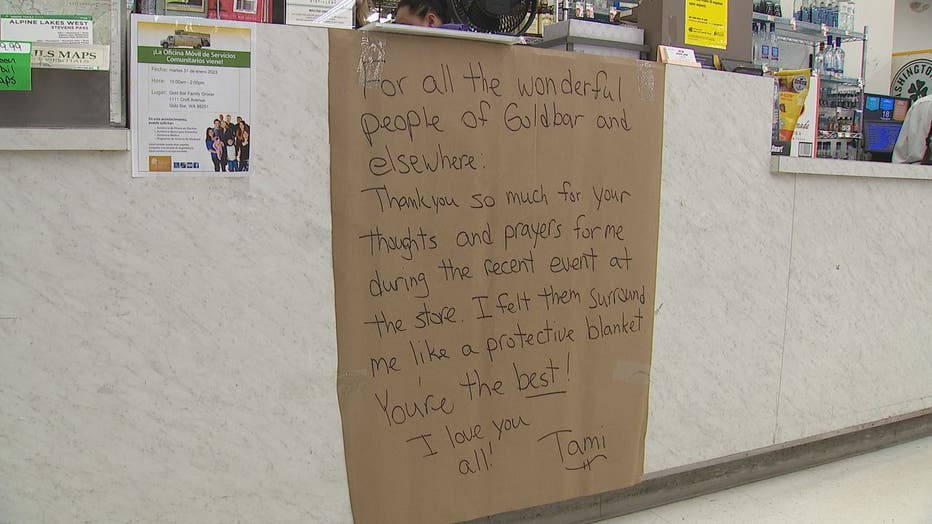 ALPINE LAKES WEST
STEVENS PASS
9.99
MAPS
¡La Oficina Móvil de Servicios
Comunitarios viene!
Fecha: martes 31 de enero 2023
Hora: 10:00am - 2:00pm
Lugar: Gold Bar Family Grocer
1111 Croft Avenue
Gold Bar, WA 98251
For all the wonderful
people of Goldbar and
elsewhere:
Thank you so much for your
thoughts and prayers for me
during the recent event at
the store. I felt them surround
me like a protective blanket
You're the best!
I love you
all!
Tami
WASHINGTON
18